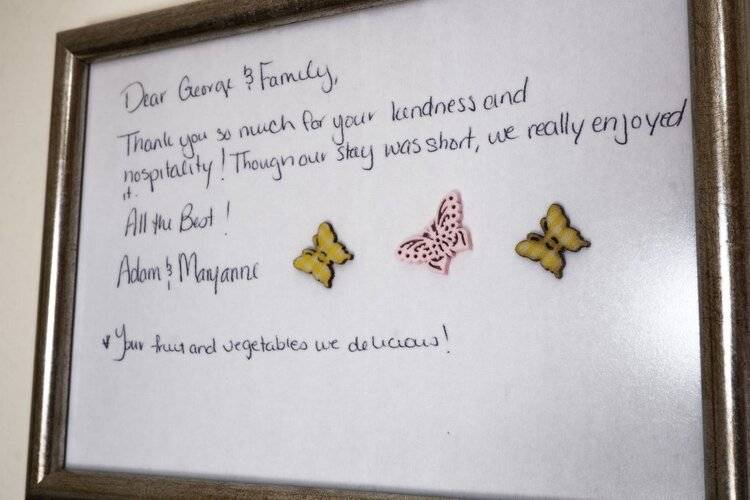 Dear George & Family,
Thank you so much for your kindness and
hospitality! Though our stay was short, we really enjoyed
it.
All the Best!
Adam & Maryanne
* Your fruit and vegetables we delicious!